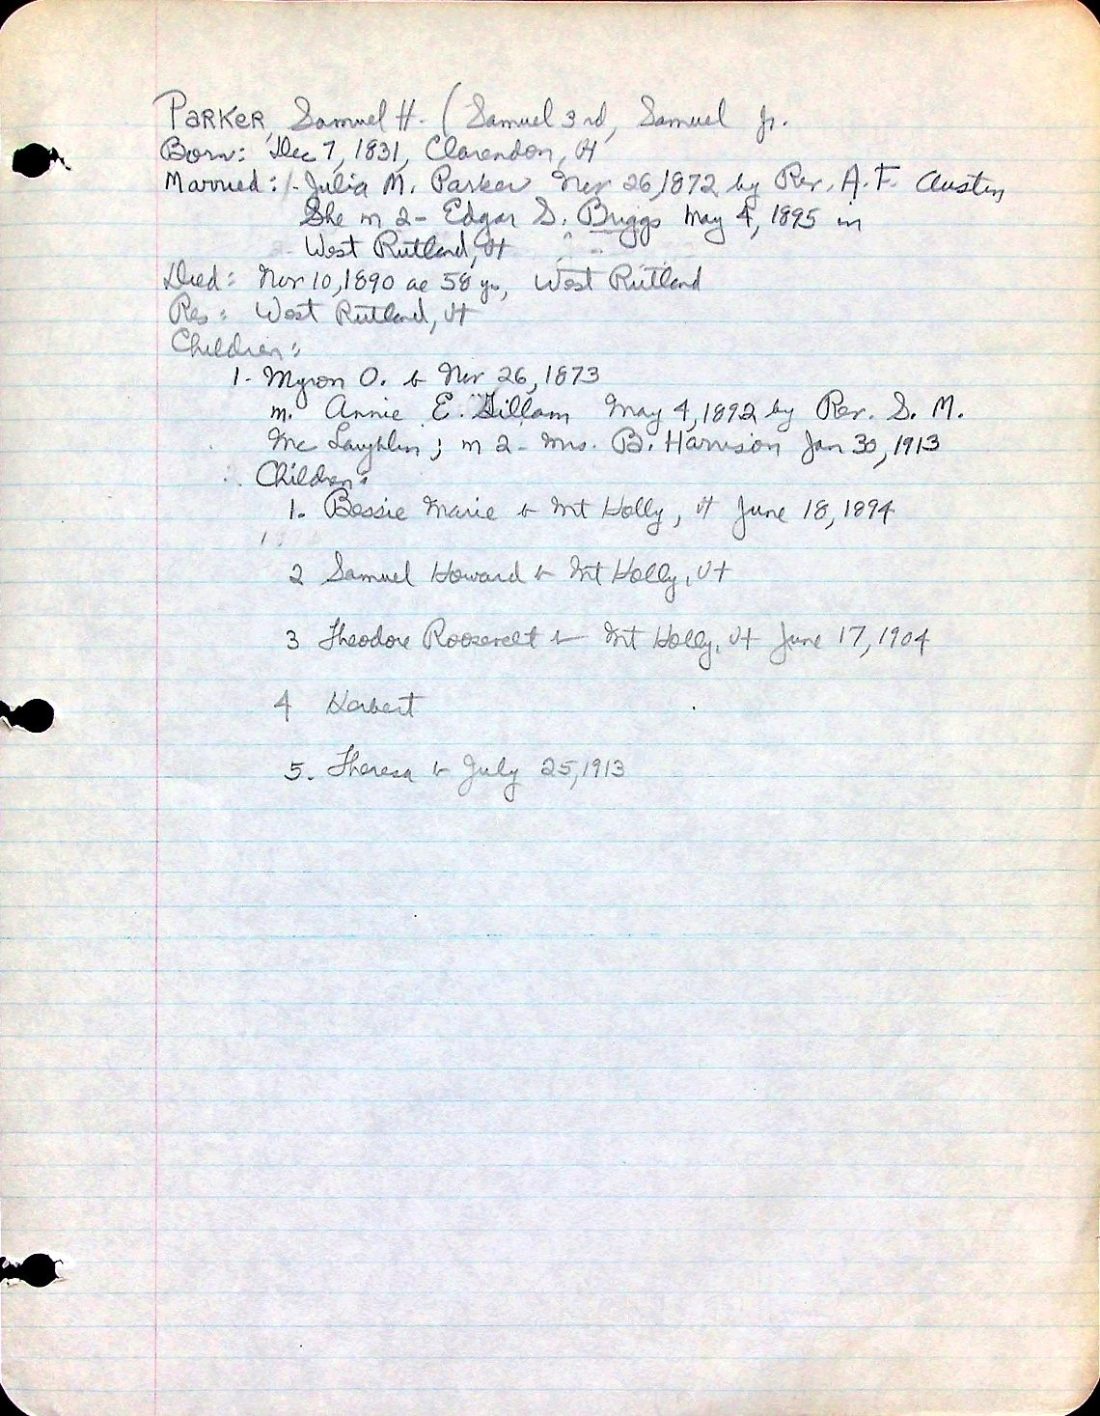 PARKER, Samuel H. (Samuel 3rd, Samuel Jr.
Born: Dec 7, 1831, Clarendon, Vt
Married: 1- Julia M. Parker Nov 26, 1872 by Rev. A. F. Austin,
She m 2- Edgar S. Briggs May 4, 1895 in
West Rutland, Vt
Died: Nov 10, 1890 ae 58 yr, West Rutland
Res: West Rutland, Vt
Children:
1- Myron O. b Nov 26, 1873
m. Annie E. Gillam May 4, 1892 by Rev. S. M.
Mc Laughlin; m 2- Mrs. B. Harrison Jan 30, 1913
Children:
1. Bessie Marie b Mt Holly, Vt June 18, 1894
2 Samuel Howard b Mt Holly, Vt
3 Theodore Roosevelt b Mt Holly, Vt June 17, 1904
4 Herbert
5. Theresa b July 25, 1913